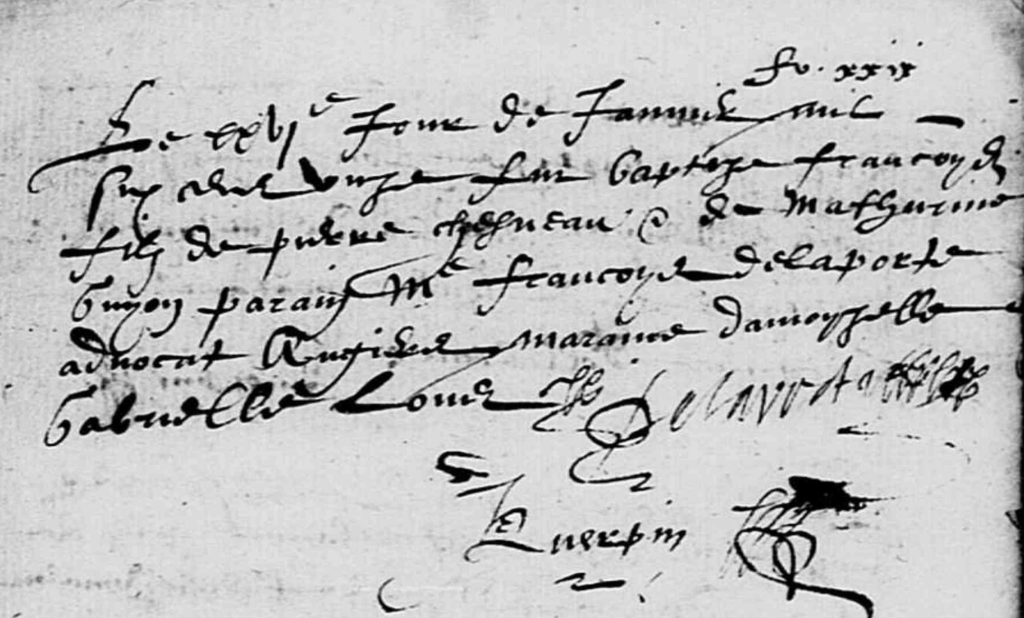 fo. xxix
Le xxvje Jour de Janvier mil
six cens unze fut baptize Francoys
filz de pierre chesneau & de Mathurine
Guyon parain Me francoys delaporte
advocat Angiers maraine damoyselle
Gabrielle Louet
Delaporte
Querpin